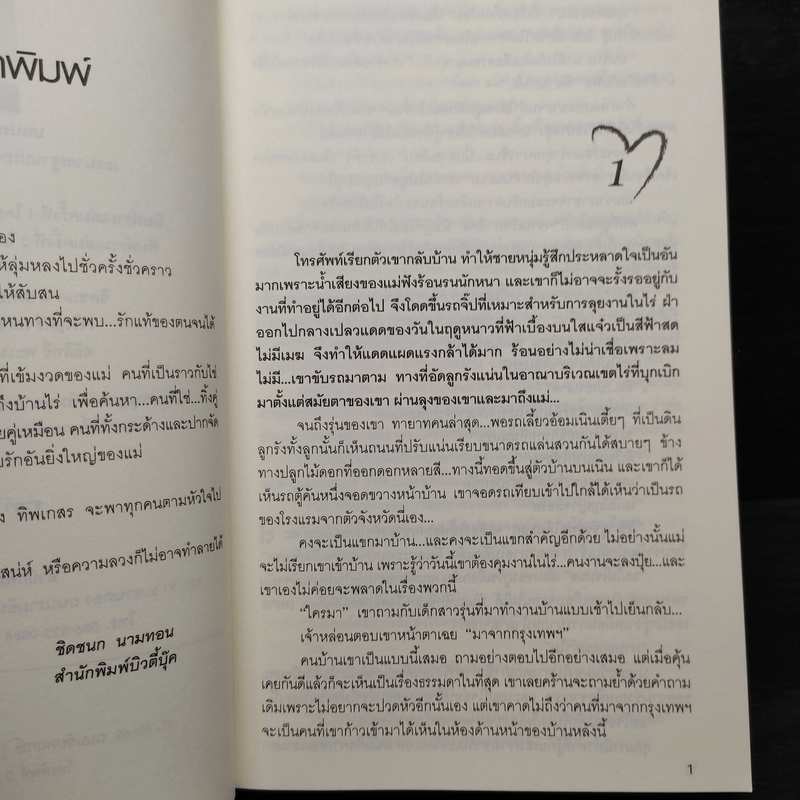 พิมพ์
ให้ลุ่มหลงไปชั่วครั้งชั่วคราว
ให้สับสน
หนทางที่จะพบ...รักแท้ของตนจนได้
ที่เข้มงวดของแม่ คนที่เป็นราวกับไข่
ถึงบ้านไร่ เพื่อค้นหา...คนที่ใช่...ทิ้งคู่
คู่เหมือน คนที่ทั้งกระด้างและปากจัด
รักอันยิ่งใหญ่ของแม่
ทิพเกสร จะพาทุกคนตามหัวใจไป
เสน่ห์ หรือความลวงก็ไม่อาจทำลายได้
ชิดชนก นามทอน
สำนักพิมพ์บิวตี้บุ๊ค
1
โทรศัพท์เรียกตัวเขากลับบ้าน ทำให้ชายหนุ่มรู้สึกประหลาดใจเป็นอัน
มากเพราะน้ำเสียงของแม่ฟังร้อนรนนักหนา และเขาก็ไม่อาจจะรั้งรออยู่กับ
งานที่ทำอยู่ได้อีกต่อไป จึงโดดขึ้นรถจิ๊ปที่เหมาะสำหรับการลุยงานในไร่ ฝ่า
ออกไปกลางเปลวแดดของวันในฤดูหนาวที่ฟ้าเบื้องบนใสแจ๋วเป็นสีฟ้าสด
ไม่มีเมฆ จึงทำให้แดดแผดแรงกล้าได้มาก ร้อนอย่างไม่น่าเชื่อเพราะลม
ไม่มี...เขาขับรถมาตาม ทางที่อัดลูกรังแน่นในอาณาบริเวณเขตไร่ที่บุกเบิก
มาตั้งแต่สมัยตาของเขา ผ่านลุงของเขาและมาถึงแม่...
จนถึงรุ่นของเขา ทายาทคนล่าสุด...พอรถเลี้ยวอ้อมเนินเตี้ยๆ ที่เป็นดิน
ลูกรังทั้งลูกนั้นก็เห็นถนนที่ปรับแน่นเรียบขนาดรถแล่นสวนกันได้สบายๆ ข้าง
ทางปลูกไม้ดอกที่ออกดอกหลายสี...ทางนี้ทอดขึ้นสู่ตัวบ้านบนเนิน และเขาก็ได้
เห็นรถตู้คันหนึ่งจอดขวางหน้าบ้าน เขาจอดรถเทียบเข้าไปใกล้ได้เห็นว่าเป็นรถ
ของโรงแรมจากตัวจังหวัดนี่เอง...
คงจะเป็นแขกมาบ้าน...และคงจะเป็นแขกสำคัญอีกด้วย ไม่อย่างนั้นแม่
จะไม่เรียกเขาเข้าบ้าน เพราะรู้ว่าวันนี้เขาต้องคุมงานในไร่...คนงานจะลงปุ๋ย...และ
เขาเองไม่ค่อยจะพลาดในเรื่องพวกนี้
“ใครมา” เขาถามกับเด็กสาวรุ่นที่มาทำงานบ้านแบบเช้าไปเย็นกลับ...
เจ้าหล่อนตอบเขาหน้าตาเฉย “มาจากกรุงเทพฯ”
คนบ้านเขาเป็นแบบนี้เสมอ ถามอย่างตอบไปอีกอย่างเสมอ แต่เมื่อคุ้น
เคยกันดีแล้วก็จะเห็นเป็นเรื่องธรรมดาในที่สุด เขาเลยคร้านจะถามย้ำด้วยคำถาม
เดิมเพราะไม่อยากจะปวดหัวอีกนั้นเอง แต่เขาคาดไม่ถึงว่าคนที่มาจากกรุงเทพฯ
จะเป็นคนที่เขาก้าวเข้ามาได้เห็นในห้องด้านหน้าของบ้านหลังนี้
1